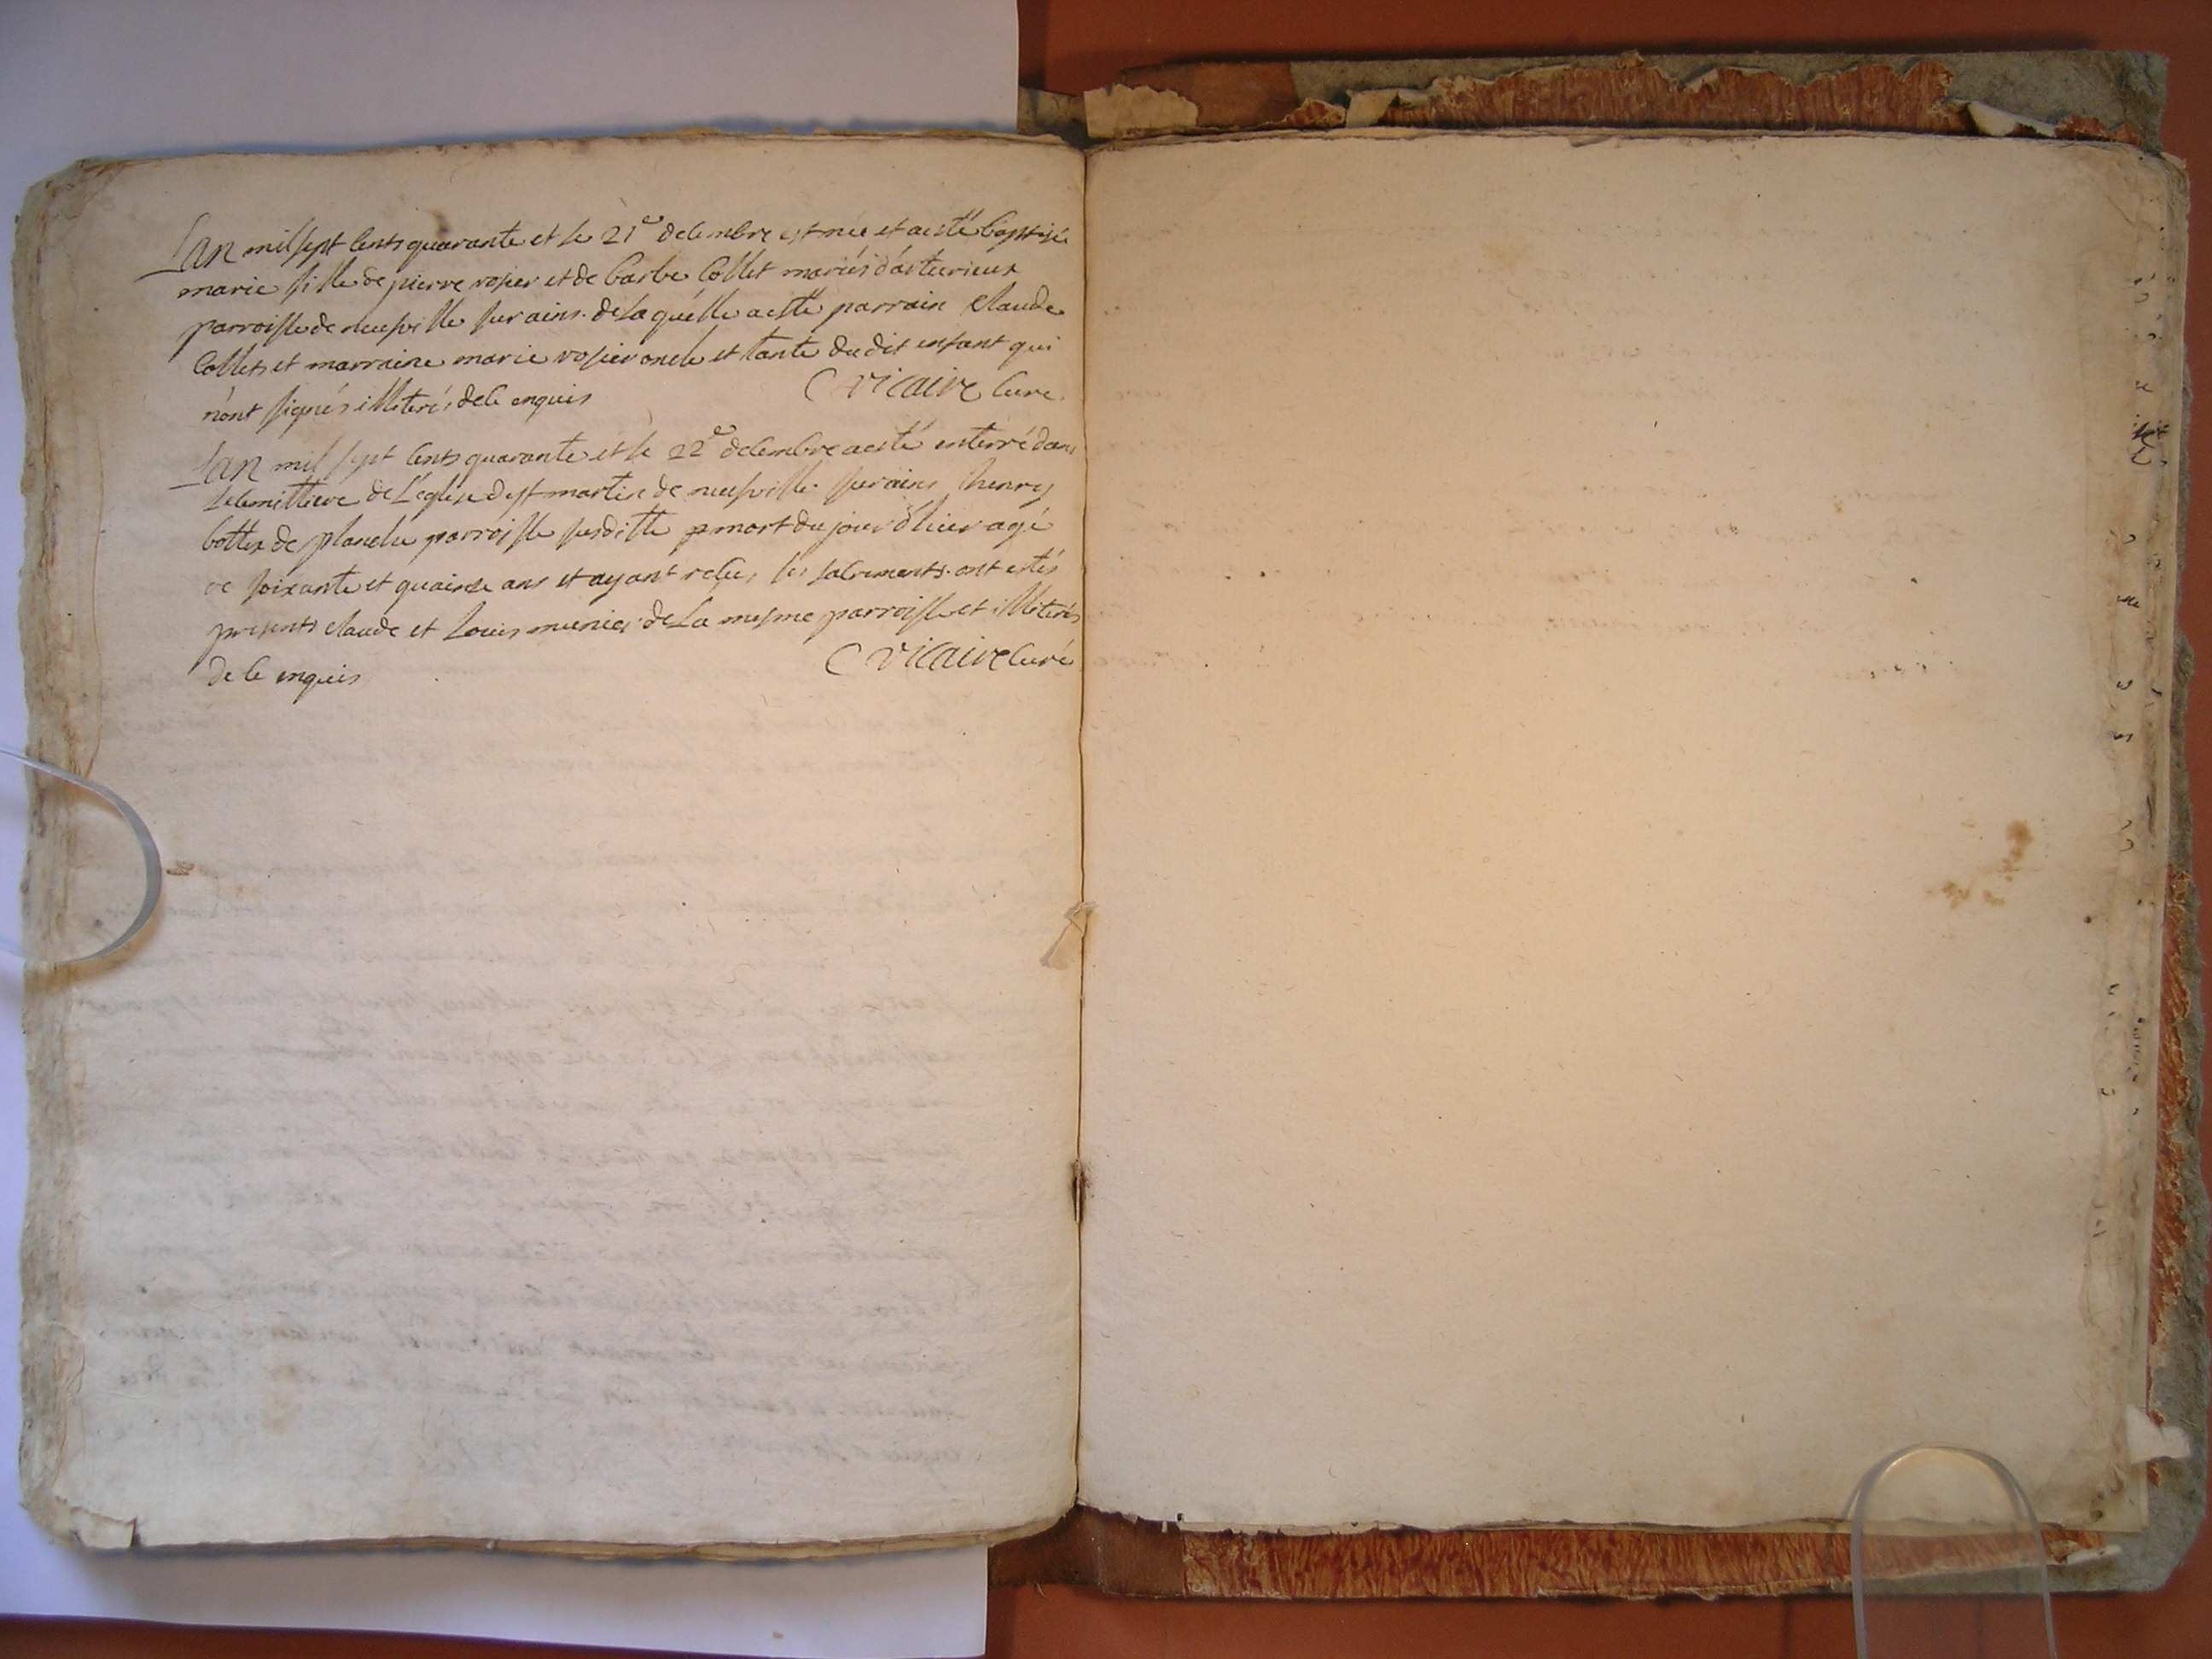 Lan mil sept cents quarante et le 21e decembre est née et a esté baptisée
marie fille de pierre rosier et de barbe Collet mariés d'asteurieux
parroisse de neufville sur ains. de laquelle a esté parrain Claude
Collet et marraine marie rosier oncle et tante du dit enfant qui
n'ont signés illiterés de ce enquis C vicaire cure
Lan mil sept cents quarante et le 22e decembre a esté enterré dans
le cemittiere de L'eglise de st martin de neufville sur ains henry
bottex de planche parroisse susditte mort du jour d'hier agé
de soixante et quainze ans et ayant reçus les sacrements. ont estés
presents claude et Louis munier de La mesme parroisse et illiterés
de ce enquis C vicaire curé